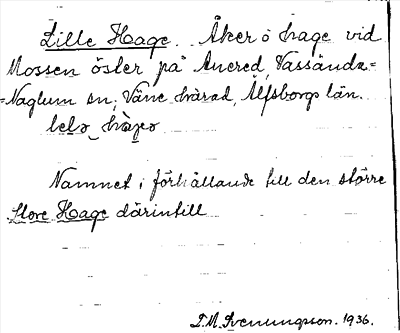 Lille Hage. Åker o hage vid
Mossen öster på Anered, Vassända-
-Naglum sn, Väne härad, Älfsborgs län.
Namnet i förhållande till den större
Store Hage därintill
S.M. Svenungsson. 1936.